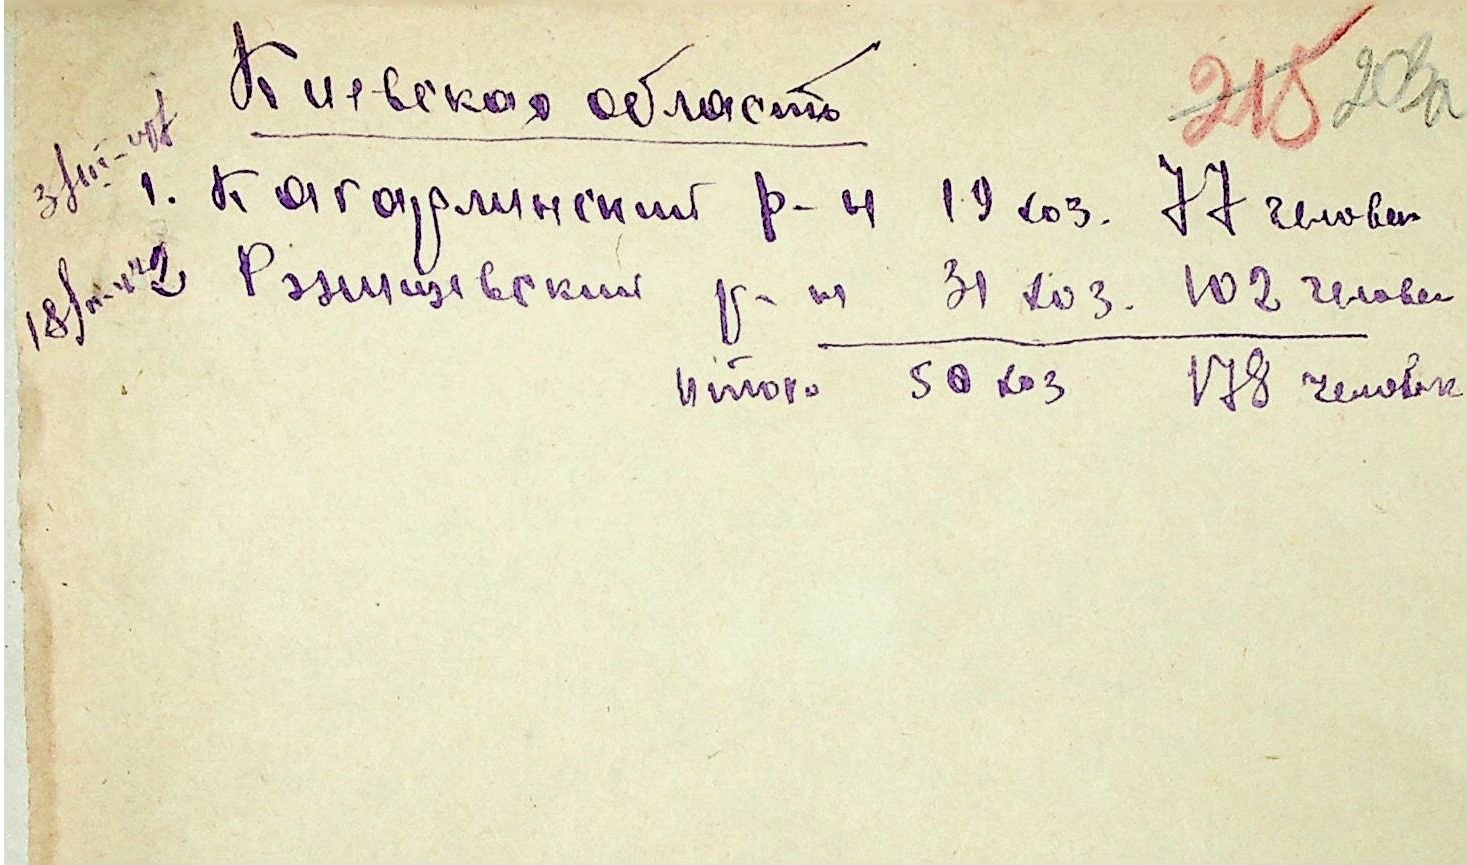 Киевская область
215 203а
1. Кагарлинский р-н 19 хоз. 77 человек
2 Ржищевский р-н 31 хоз. 102 человек
Итого 50 хоз 178 человек